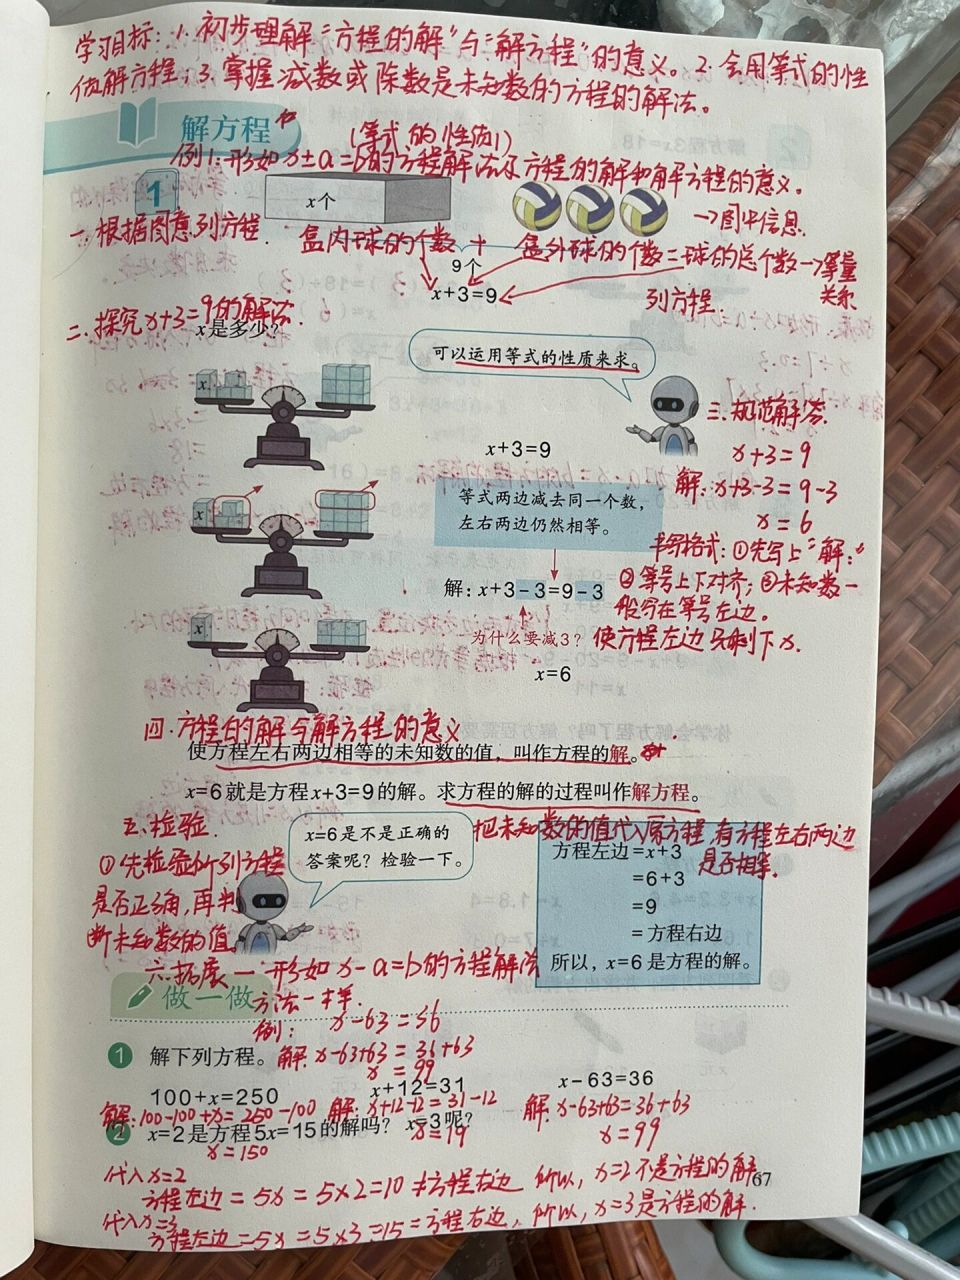 学习目标：1.初步理解“方程的解”与“解方程”的意义。2.会用等式的性
质解方程。3.掌握减数或除数是未知数的方程的解法。
解方程
(等式的性质1)
例1:形如x±a=b的方程解法及方程的解和解方程的意义。
1
x个
→图中信息
一.根据图意列方程.
盒内球的个数 + 盒外球的个数=球的总个数→等量
关系
9个
x+3=9
列方程.
二.探究x+3=9的解法.
x是多少？
可以运用等式的性质来求。
三.规范解答.
x+3=9
解:x+3-3=9-3
x=6
x+3=9
等式两边减去同一个数，
左右两边仍然相等。
书写格式:①先写上“解:”
②等号上下对齐;③未知数一
般写在等号左边。
解：x+3-3=9-3
为什么要减3？ 使方程左边只剩下x.
x=6
四.方程的解与解方程的意义
使方程左右两边相等的未知数的值，叫作方程的解。
x=6就是方程x+3=9的解。求方程的解的过程叫作解方程。
五.检验.
把未知数的值代入原方程,看方程左右两边
是否相等.
①先检验所列方程
是否正确,再判
断未知数的值。
x=6是不是正确的
答案呢？检验一下。
方程左边=x+3
=6+3
=9
=方程右边
所以，x=6是方程的解。
六.拓展一:形如x-a=b的方程解法
方法一样.
做一做
例: x-63=36
解:x-63+63=36+63
x=99
1 解下列方程。
100+x=250 x+12=31 x-63=36
解:100-100+x=250-100 解:x+12-12=31-12 解:x-63+63=36+63
x=150 x=19 x=99
2 x=2是方程5x=15的解吗？x=3呢？
代入x=2
方程左边=5x=5×2=10≠方程右边 所以,x=2不是方程的解
代入x=3
方程左边=5x=5×3=15=方程右边,所以,x=3是方程的解.
67